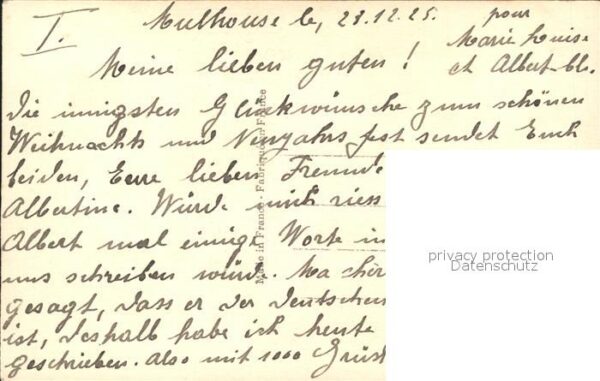 I.
Mulhouse le, 23.12.25.
pour
Marie Louise
et Albert
Meine lieben guten!
Die innigsten Glückwünsche zum schönen
Weihnachts und Neujahrs fest sendet Euch
beiden, Eure lieben Freunde
Albertine. Würde mich riess
Albert mal einige Worte in
uns schreiben würde. Ma
gesagt, dass er der Deutschen
ist, deshalb habe ich heute
geschrieben. Also mit 1000 Grüss
Made in France - Fabriqué en France
privacy protection
Datenschutz